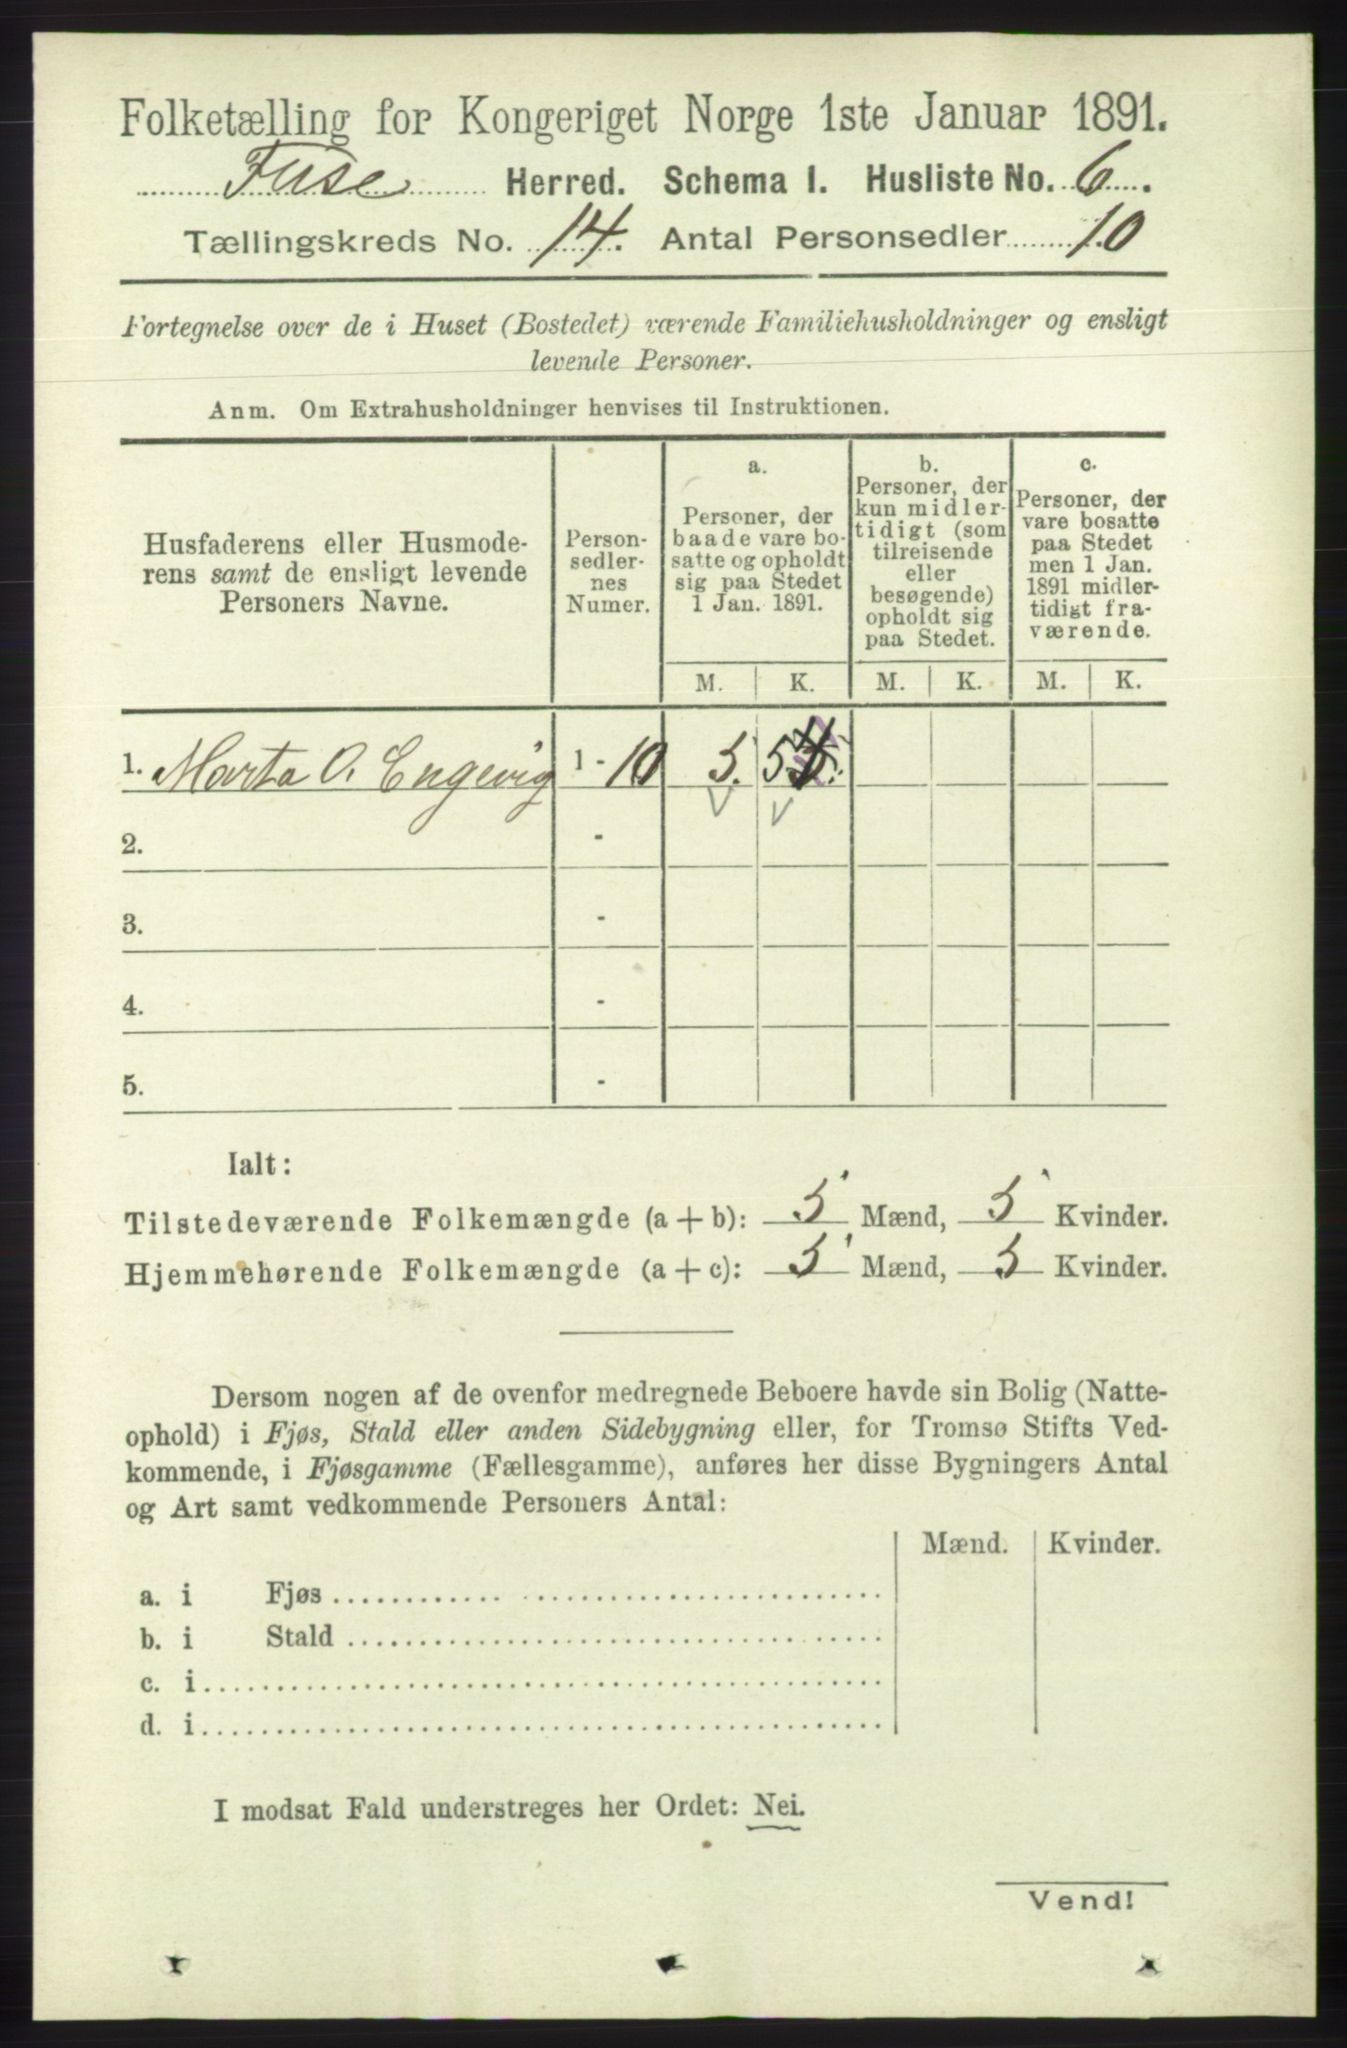 Folketælling for Kongeriget Norge 1ste Januar 1891.
Fuse Herred. Schema I. Husliste No. 6.
Tællingskreds No. 14. Antal Personsedler 10
Fortegnelse over de i Huset (Bostedet) værende Familiehusholdninger og ensligt
levende Personer.
Anm. Om Extrahusholdninger henvises til Instruktionen.
Husfaderens eller Husmode-
rens samt de ensligt levende
Personers Navne.
Person-
sedler-
nes
Numer.
a.
Personer, der
baade vare bo-
satte og opholdt
sig paa Stedet
1 Jan. 1891.
b.
Personer, der
kun midler-
tidigt (som
tilreisende
eller
besøgende)
opholdt sig
paa Stedet.
c.
Personer, der
vare bosatte
paa Stedet
men 1 Jan.
1891 midler-
tidigt fra-
værende.
M. K. M. K. M. K.
1. Marta O. Engevig 1 - 10 5. 5
2. -
3. -
4. -
5. -
Ialt:
Tilstedeværende Folkemængde (a + b): 5 Mænd, 5 Kvinder.
Hjemmehørende Folkemængde (a + c): 5 Mænd, 5 Kvinder.
Dersom nogen af de ovenfor medregnede Beboere havde sin Bolig (Natte-
ophold) i Fjøs, Stald eller anden Sidebygning eller, for Tromsø Stifts Ved-
kommende, i Fjøsgamme (Fællesgamme), anføres her disse Bygningers Antal
og Art samt vedkommende Personers Antal:
Mænd. Kvinder.
a. i Fjøs
b. i Stald
c. i
d. i
I modsat Fald understreges her Ordet: Nei.
Vend!